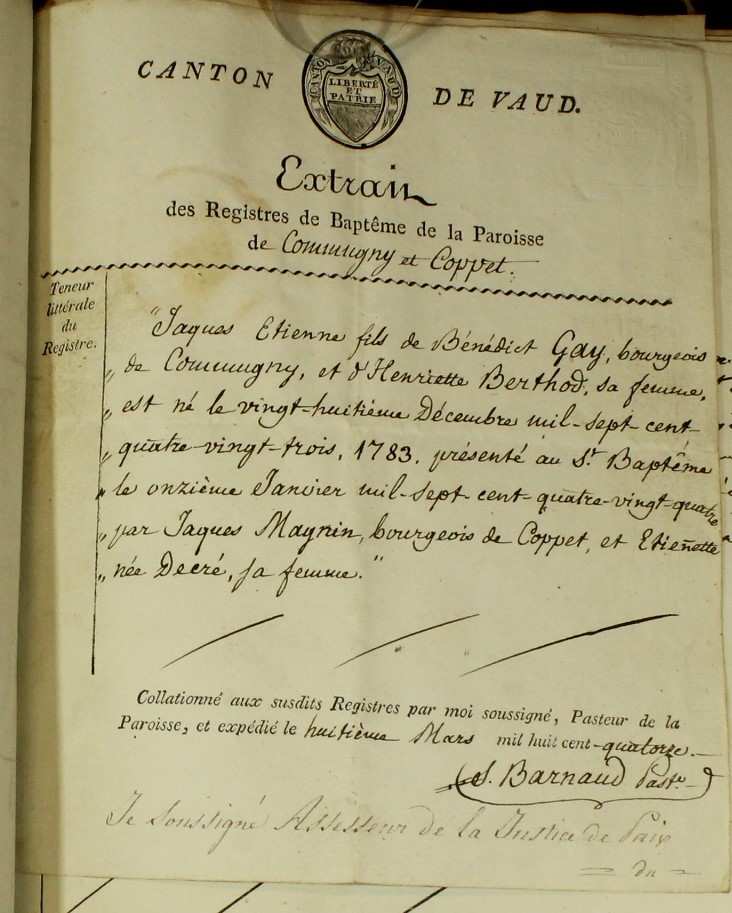 CANTON DE VAUD.
CANTON DE VAUD
LIBERTÉ
ET
PATRIE
Extrait
des Registres de Baptême de la Paroisse
de Commugny et Coppet.
Teneur
littérale
du
Registre.
"Jaques Etienne fils de Bénédict Gay, bourgeois
„ de Commugny, et d'Henriette Berthod, sa femme,
„ est né le vingt-huitième Décembre mil-sept cent-
„ quatre-vingt-trois, 1783. présenté au St. Baptême
„ le onzième Janvier mil-sept-cent-quatre-vingt-quatre
„ par Jaques Magnin, bourgeois de Coppet, et Etieñette
„ née Decré, sa femme."
Collationné aux susdits Registres par moi soussigné, Pasteur de la
Paroisse, et expédié le huitième Mars mil huit cent-quatorze.—
S. Barnaud Pastr.
Je soussigné Assesseur de la Justice de Paix
du